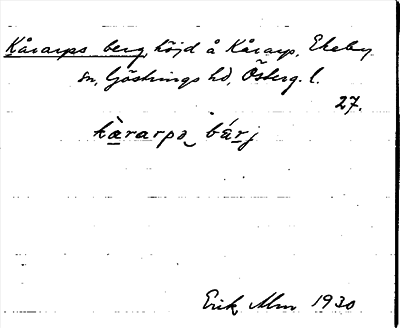 Kårarps berg, höjd å Kårarp, Ekeby
sn, Göstrings hd, Österg. l.
27.
kàrarpa bárj
Erik Alm 1930